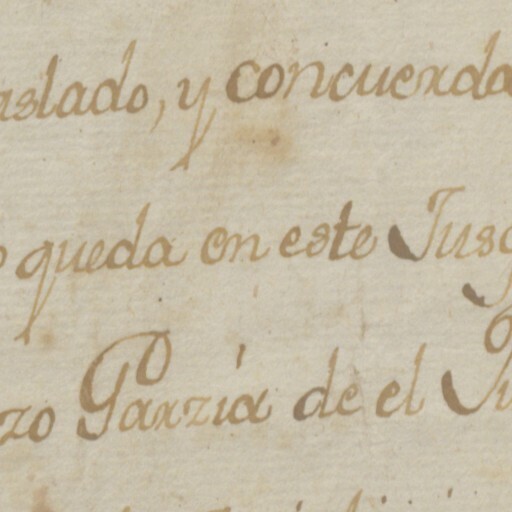 aslado, y concuerda
o queda en este Jusg
zo Garzía de el Ju